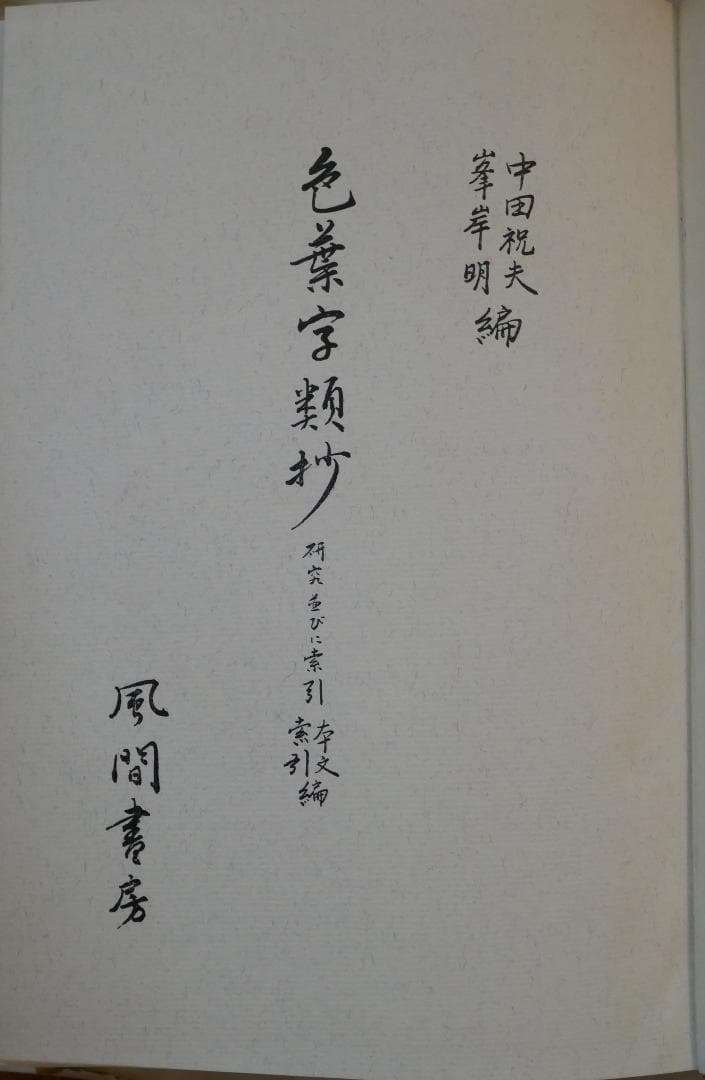 中田祝夫
峯岸明 編
色葉字類抄 研究並びに索引 本文
索引編
風間書房